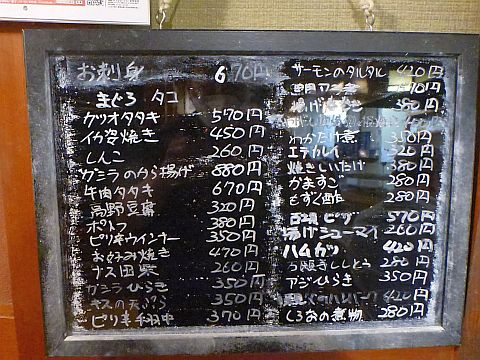 お刺身 670円
まぐろ タコ
カツオタタキ 570円
イカ姿焼き 450円
しんこ 260円
クジラのから揚げ 880円
牛肉タタキ 670円
高野豆腐 320円
ポトフ 380円
ピリ辛ウインナー 350円
お好み焼き 470円
ナス田楽 260円
クジラひらき 350円
キスの天ぷら 350円
ピリ辛手羽中 370円
サーモンのタルタル 420円
370円
揚げ 380円
わかたけ煮 350円
エテカレイ 320円
焼きしいたけ 380円
かますご 280円
もずく酢 280円
ピザ 570円
揚げシューマイ 260円
ハムカツ 420円
万願寺ししとう 280円
アジひらき 350円
420円
しろなの煮物 280円